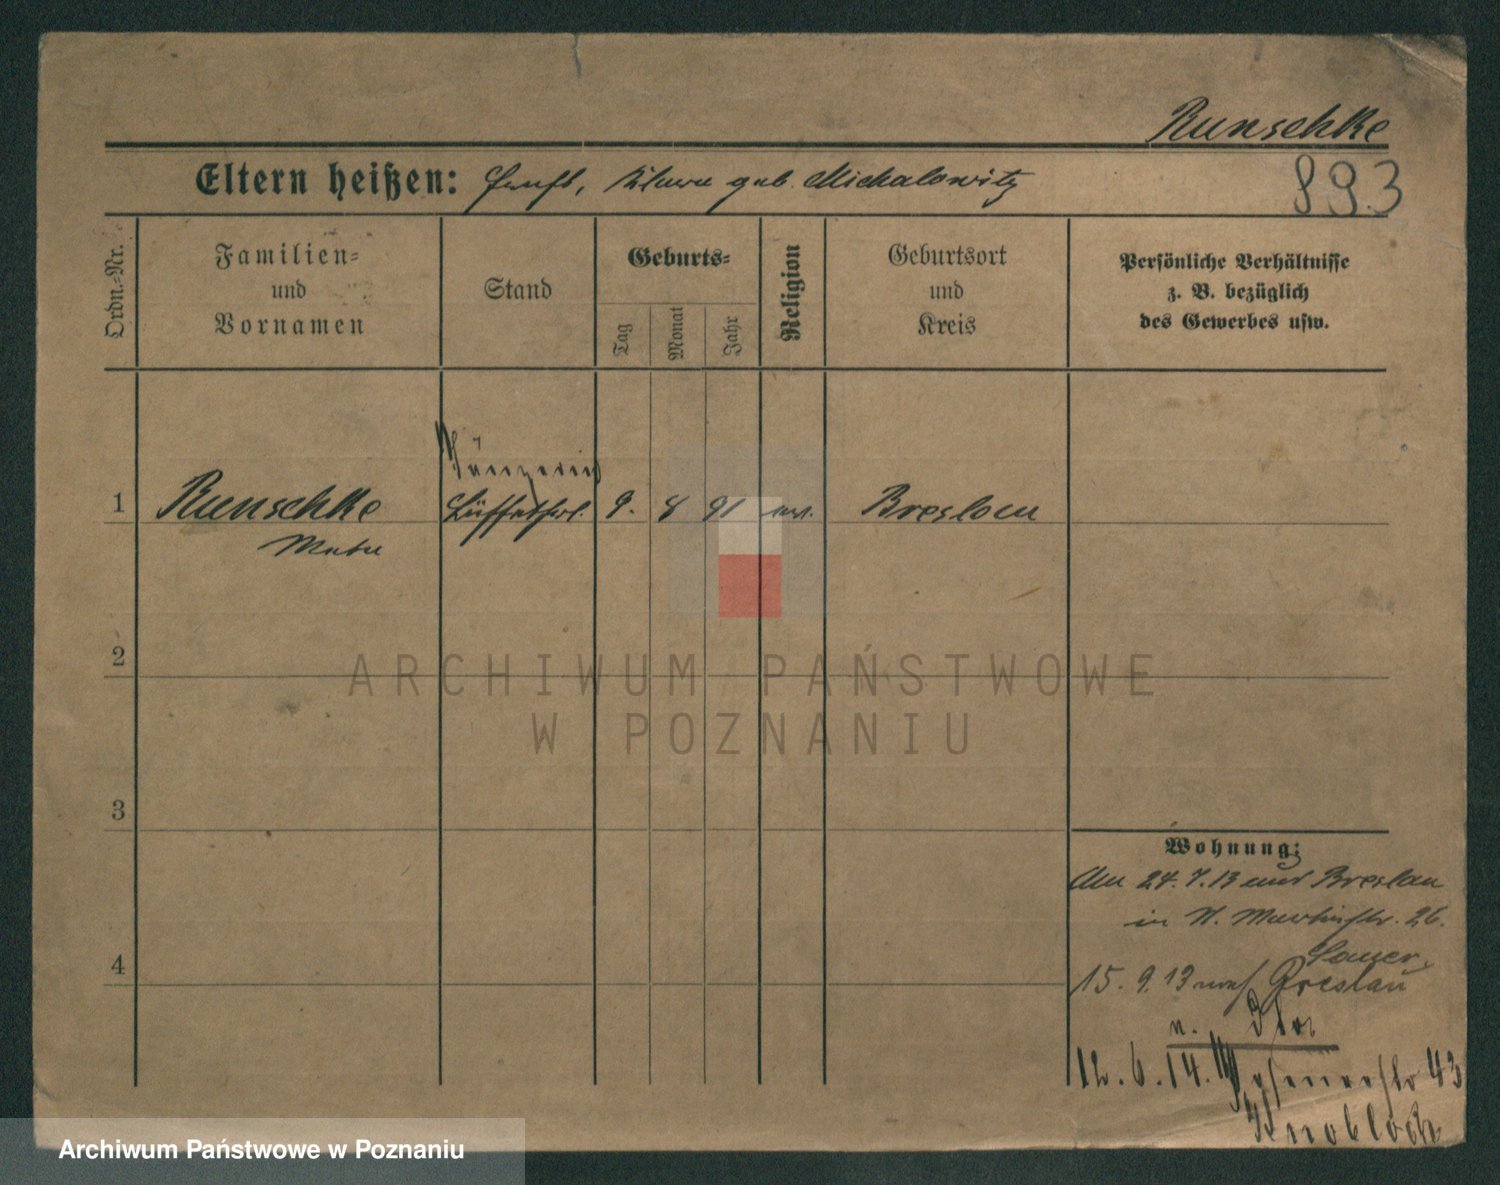 Runschke
893
Eltern heißen: Ernst, Klara geb. Michalowitz
Ordn.=Nr.
Familien=
und
Vornamen
Stand
Geburts=
Tag
Monat
Jahr
Religion
Geburtsort
und
Kreis
Persönliche Verhältnisse
z. B. bezüglich
des Gewerbes usw.
1
Runschke
9. 8 91
Breslau
2
ARCHIWUM PAŃSTWOWE
W POZNANIU
3
Wohnung:
Am 24. 7. 13 aus Breslau
in St. Martinstr. 26.
Sauer
15. 9. 13 nach Breslau
4
12. 6. 14. 43
Knobloch
Archiwum Państwowe w Poznaniu